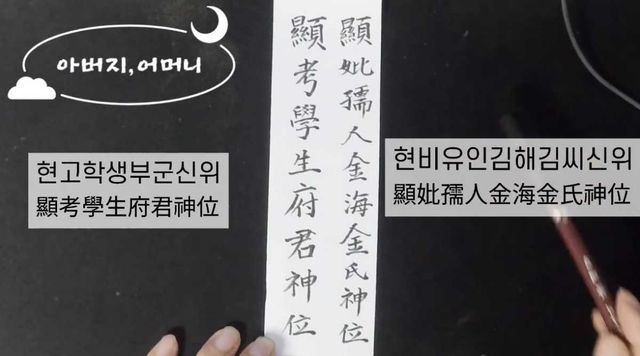 아버지,어머니
현고학생부군신위
顯考學生府君神位
顯考學生府君神位
顯妣孺人金海金氏神位
현비유인김해김씨신위
顯妣孺人金海金氏神位